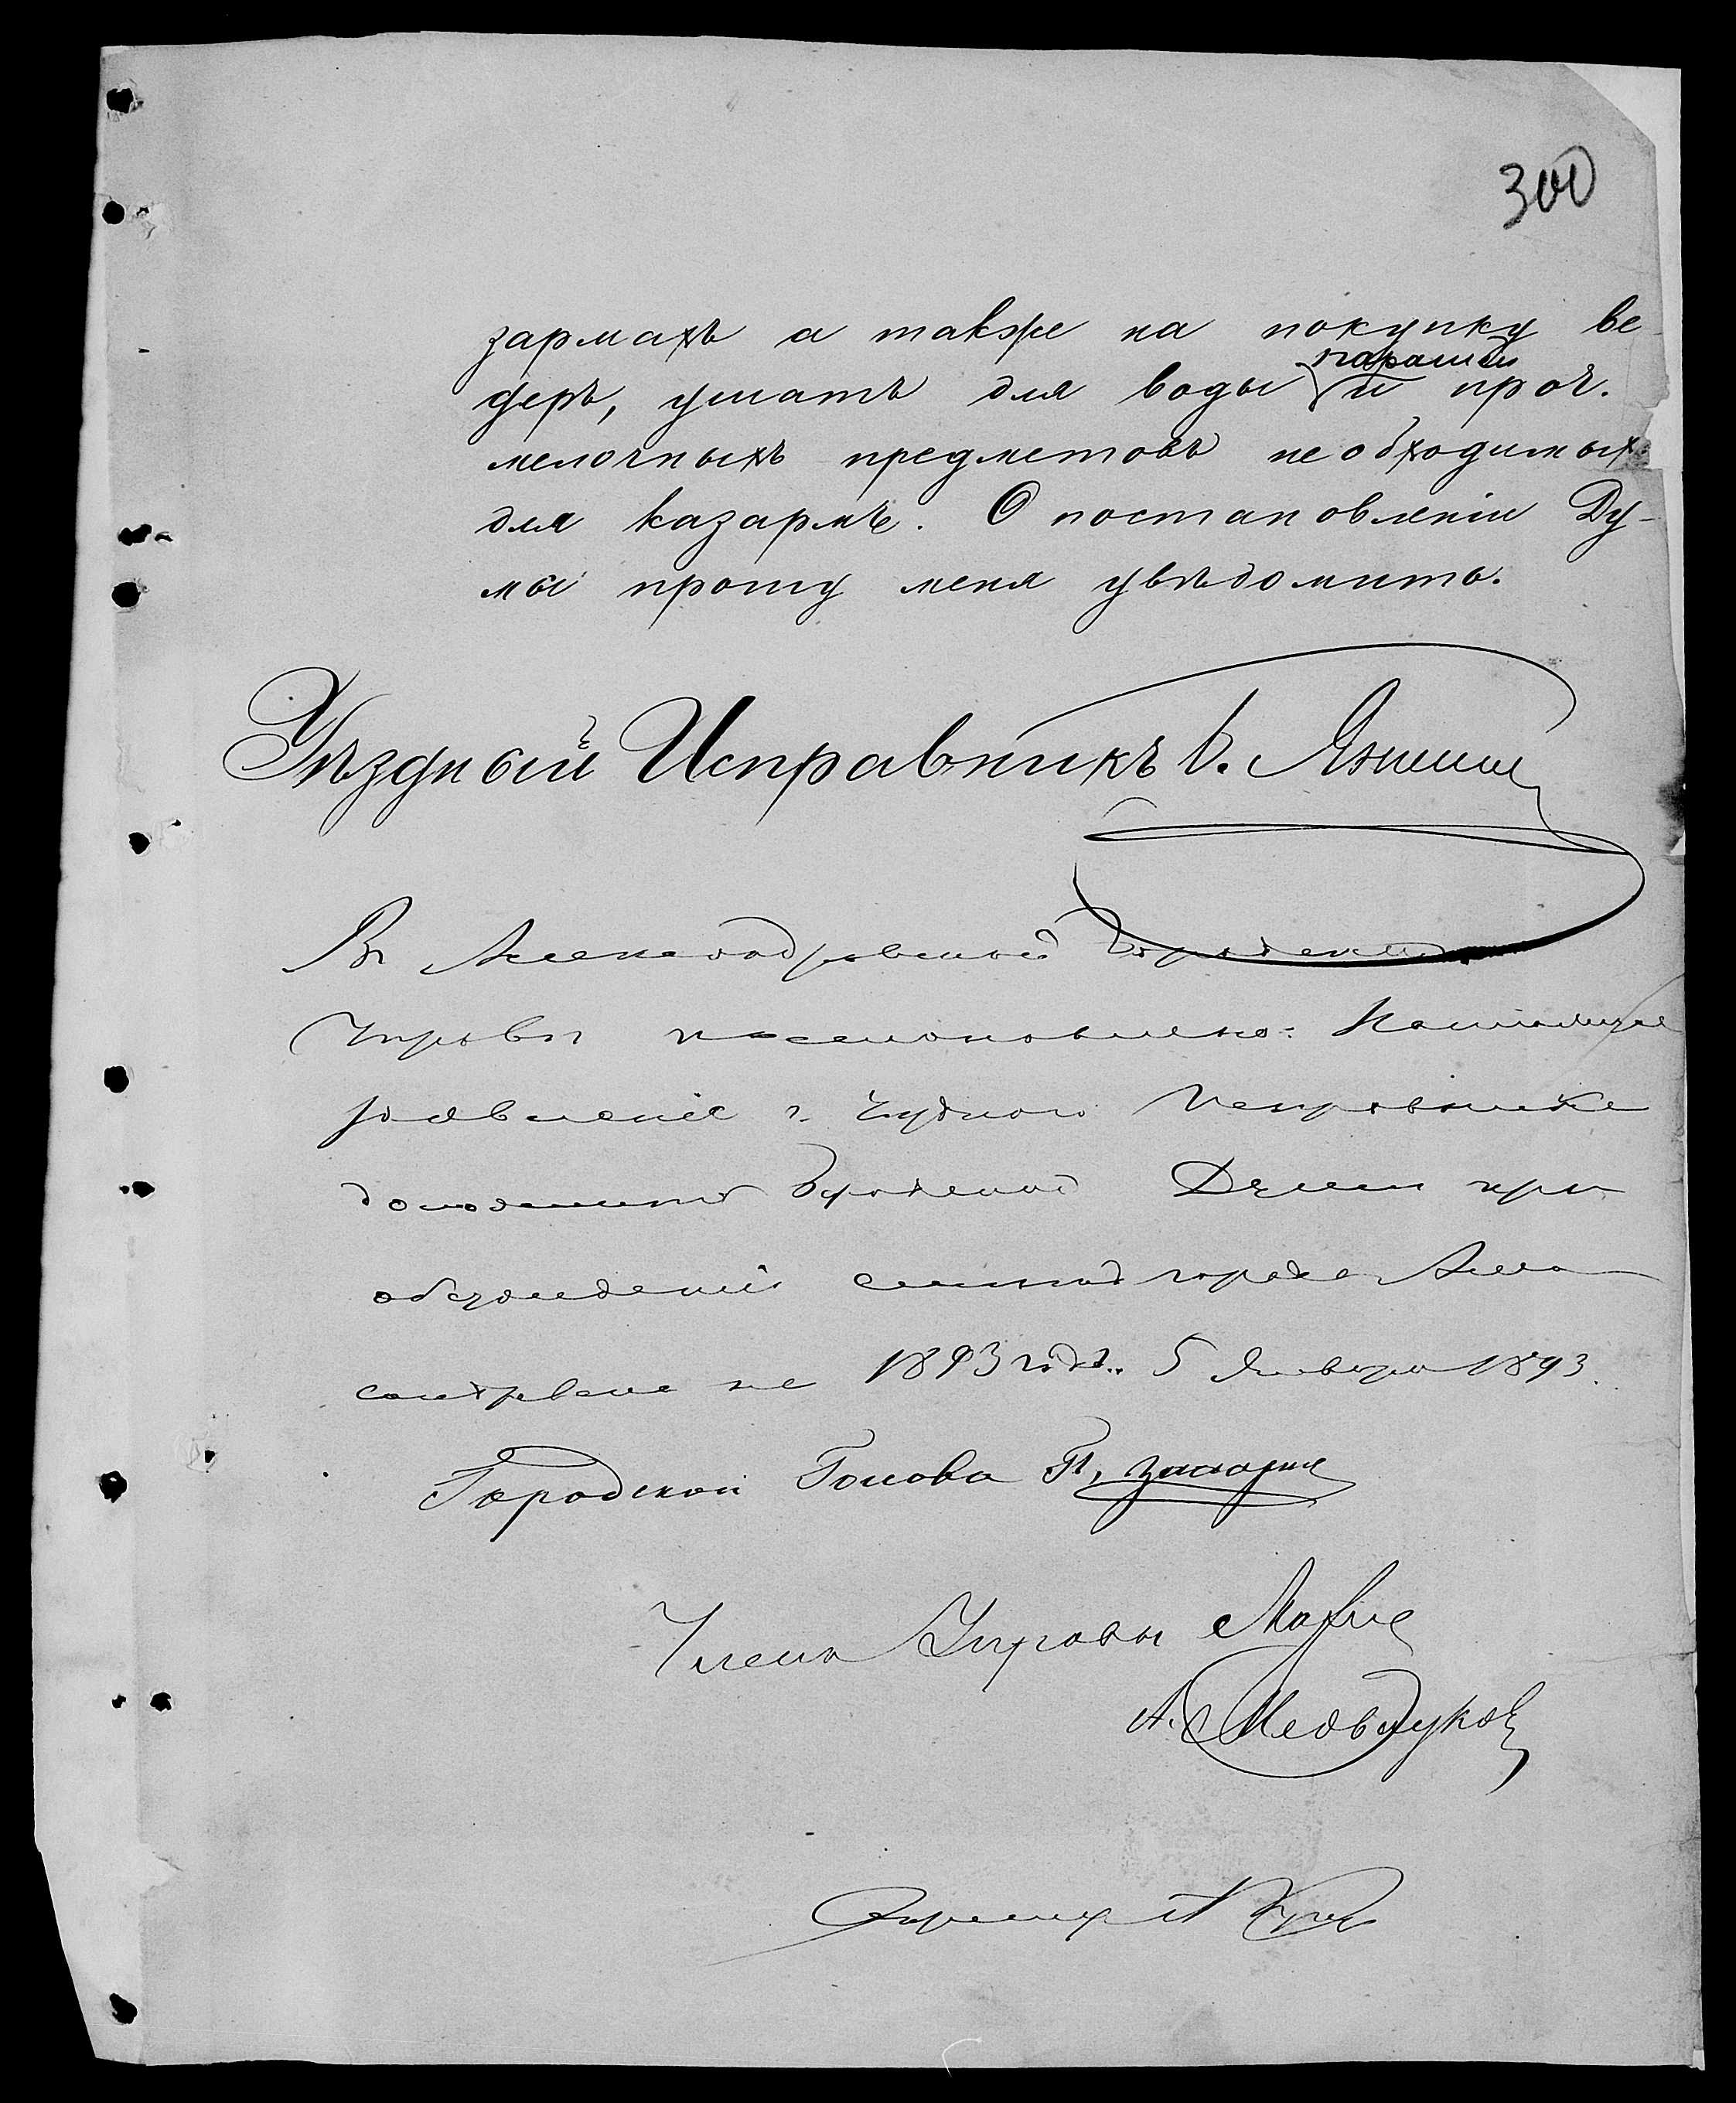 300
зармахъ а также на покупку ве-
парашки
деръ, ушатъ для воды и проч.
мелочныхъ предметовъ необходимых
для казармъ. О постановленіи Ду-
мы прошу меня увѣдомить.
Уѣздный Исправникъ В. Яншин
Въ Александровской Городской
Управѣ постановлено: Настоящее
заявленіе г. Уѣзднаго Исправника
доложить Городской Думѣ при
обсужденіи смѣты города Але-
ксандровска на 1893 годъ. 5 Января 1893.
Городской Голова
Члены Управы
А. Медвѣдуков